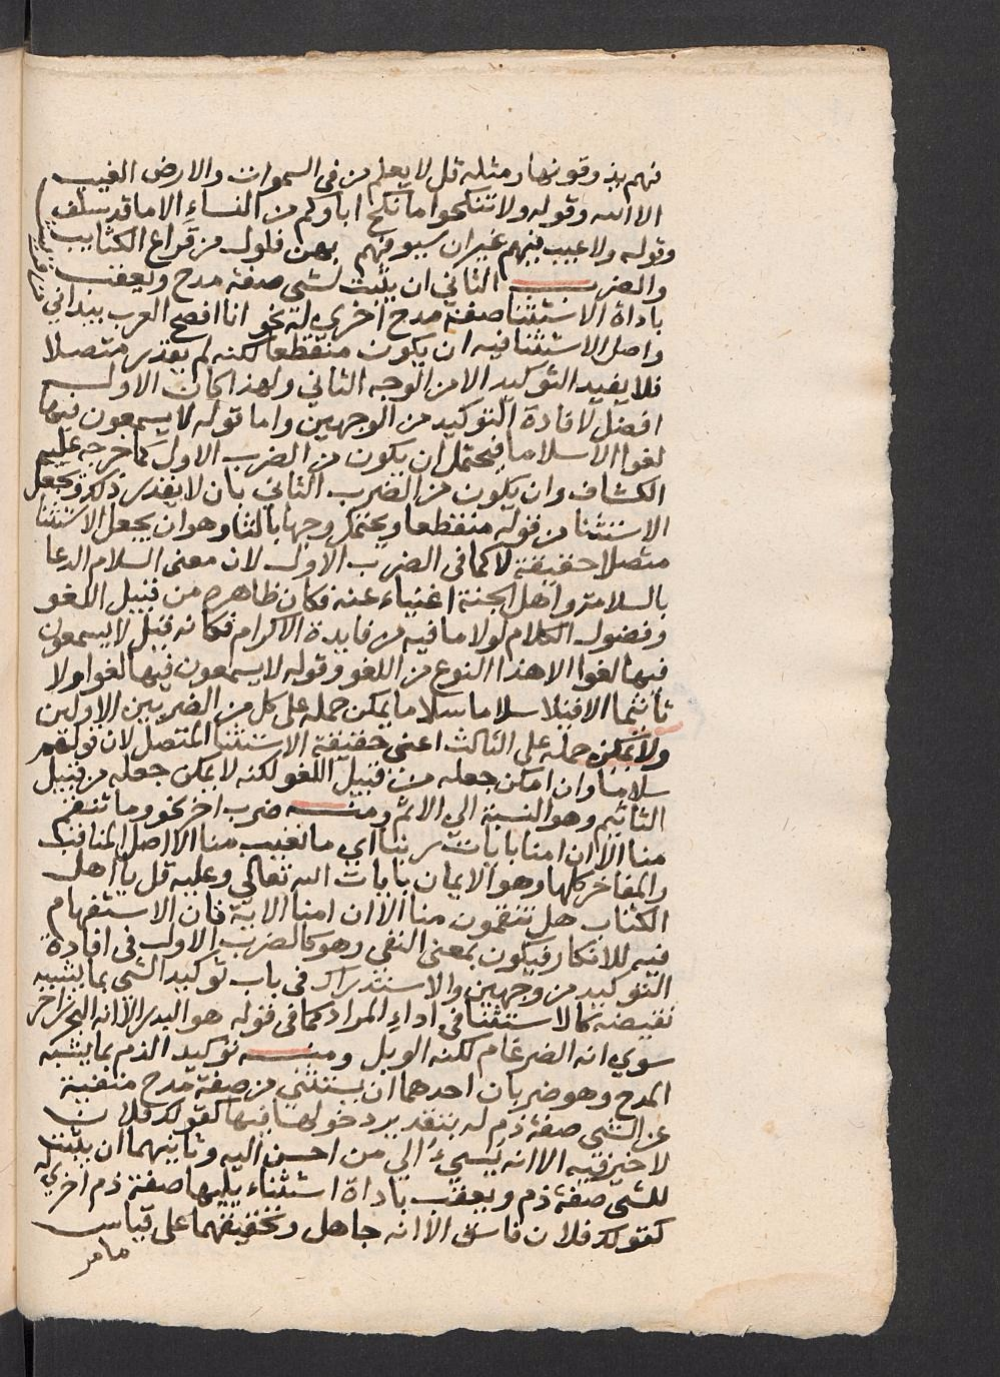 فهم يذوقونها ومثله قل لا يعلم من في السموات والارض الغيب
الا الله وقوله ولا تنكحوا ما نكح اباوكم من النساء الا ما قد سلف
وقوله ولا عيب فيهم غير ان سيوفهم بهن فلول من قراع الكتايب
والضرب الثاني ان يثبت لشي صفة مدح ويعقب
باداة الاستثنا صفة مدح اخري له نحو انا افصح العرب بيد اني
واصل الاستثنا فيه ان يكون منقطعا لكنه لم يقدر متصلا
فلا يفيد التوكيد الا من الوجه الثاني ولهذا كان الاول
افضل لافادة التوكيد من الوجهين واما قوله لا يسمعون فيها
لغوا الا سلاما فيحتمل ان يكون من الضرب الاول كما خرجه عليه
الكشاف وان يكون من الضرب الثاني بان لا يقدر ذلك ويجعل
الاستثنا من قوله منقطعا ويحتمل وجها ثالثا وهو ان يجعل الاستثنا
متصلا حقيقة لا كما في الضرب الاول لان معنى السلام الدعا
بالسلامة واهل الجنة اغنياء عنه فكان ظاهره من قبيل اللغو
وفضول الكلام لولا ما فيه من فايدة الاكرام فكانه قيل لا يسمعون
فيها لغوا الا هذا النوع من اللغو وقوله لا يسمعون فيها لغوا ولا
تاثيما الا قيلا سلاما سلاما يمكن حمله على كل من الضربين الاولين
ولا يمكن حمله على الثالث اعني حقيقة الاستثنا المتصل لان قولهم
سلاما وان امكن جعله من قبيل اللغو لكنه لا يمكن جعله من قبيل
التاثيم وهو النسبة الي الاثم ومنه ضرب اخر نحو وما تنقم
منا الا ان امنا بايات ربنا اي ما تعيب منا الا اصل المناقب
والمفاخر كلها وهو الايمان بايات الله تعالي وعليه قل يا اهل
الكتاب هل تنقمون منا الا ان امنا الاية فان الاستفهام
فيه للانكار فيكون بمعنى النفي وهو كالضرب الاول في افادة
التوكيد من وجهين والاستدراك في باب توكيد الشي بما يشبه
نقيضه كالاستثنا في اداء المراد كما في قوله هو البدر الا انه البحر زاخر
سوي انه الضرغام لكنه الوبل ومنه توكيد الذم بما يشبه
المدح وهو ضربان احدهما ان يستثنى من صفة مدح منفية
عن الشي صفة ذم له بتقدير دخولها فيها كقولك فلان
لا خير فيه الا انه يسيء الي من احسن اليه وثانيهما ان يثبت
للشي صفة ذم ويعقب باداة استثناء يليها صفة ذم اخري له
كقولك فلان فاسق الا انه جاهل وتحقيقهما على قياس
ما مر